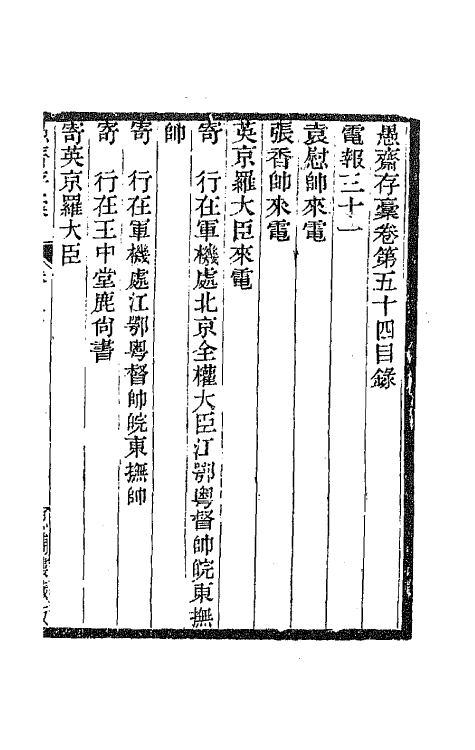 愚齋存稾卷第五十四目錄
電報三十一
袁慰帥來電
張香帥來電
英京羅大臣來電
寄 行在軍機處北京全權大臣江鄂粵督帥皖東撫
帥
寄 行在軍機處江鄂粵督帥皖東撫帥
寄 行在王中堂鹿尙書
寄英京羅大臣